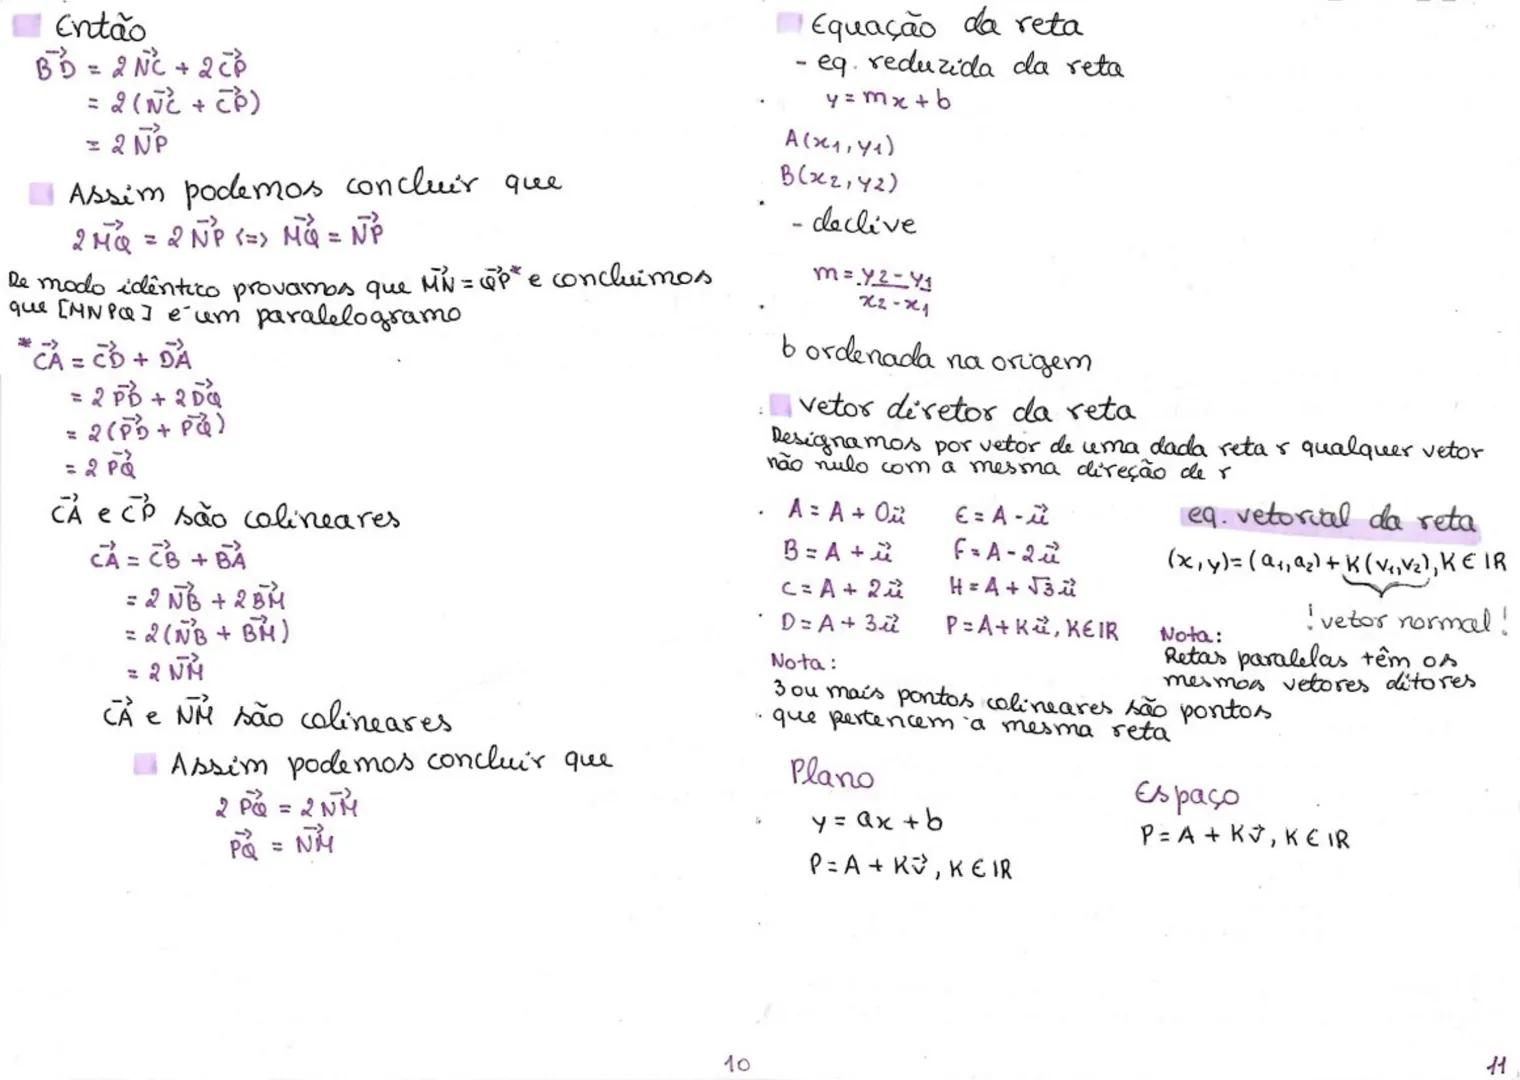 Então
B⃗D = 2 N⃗C + 2 C⃗P
= 2 (N⃗C + C⃗P)
= 2 N⃗P
Assim podemos concluir que
2 M⃗Q = 2 N⃗P <=> M⃗Q = N⃗P
De modo idêntico provamos que M⃗N = Q⃗P* e concluimos
que [MNPQ] é um paralelogramo
* C⃗A = C⃗D + D⃗A
= 2 P⃗D + 2 D⃗Q
= 2 (P⃗D + P⃗Q)
= 2 P⃗Q
C⃗A e C⃗P são colineares
C⃗A = C⃗B + B⃗A
= 2 N⃗B + 2 B⃗M
= 2 (N⃗B + B⃗M)
= 2 N⃗M
C⃗A e N⃗M são colineares
Assim podemos concluir que
2 P⃗Q = 2 N⃗M
P⃗Q = N⃗M
10
Equação da reta
- eq. reduzida da reta
y = mx + b
A(x₁, y₁)
B(x₂, y₂)
- declive
m = y₂ - y₁
x₂ - x₁
b ordenada na origem
vetor diretor da reta
Designamos por vetor de uma dada reta r qualquer vetor
não nulo com a mesma direção de r
A = A + 0u⃗ E = A - u⃗
B = A + u⃗ F = A - 2u⃗
C = A + 2u⃗ H = A + √3u⃗
D = A + 3u⃗ P = A + Ku⃗, K∈IR
eq. vetorial da reta
(x, y) = (a₁, a₂) + K(v₁, v₂), K ∈ IR
! vetor normal !
Nota:
Retas paralelas têm os
mesmos vetores ditores
Nota:
3 ou mais pontos colineares são pontos
que pertencem à mesma reta
Plano
y = ax + b
P = A + Kv⃗, K ∈ IR
Espaço
P = A + Kv⃗, K ∈ IR
11